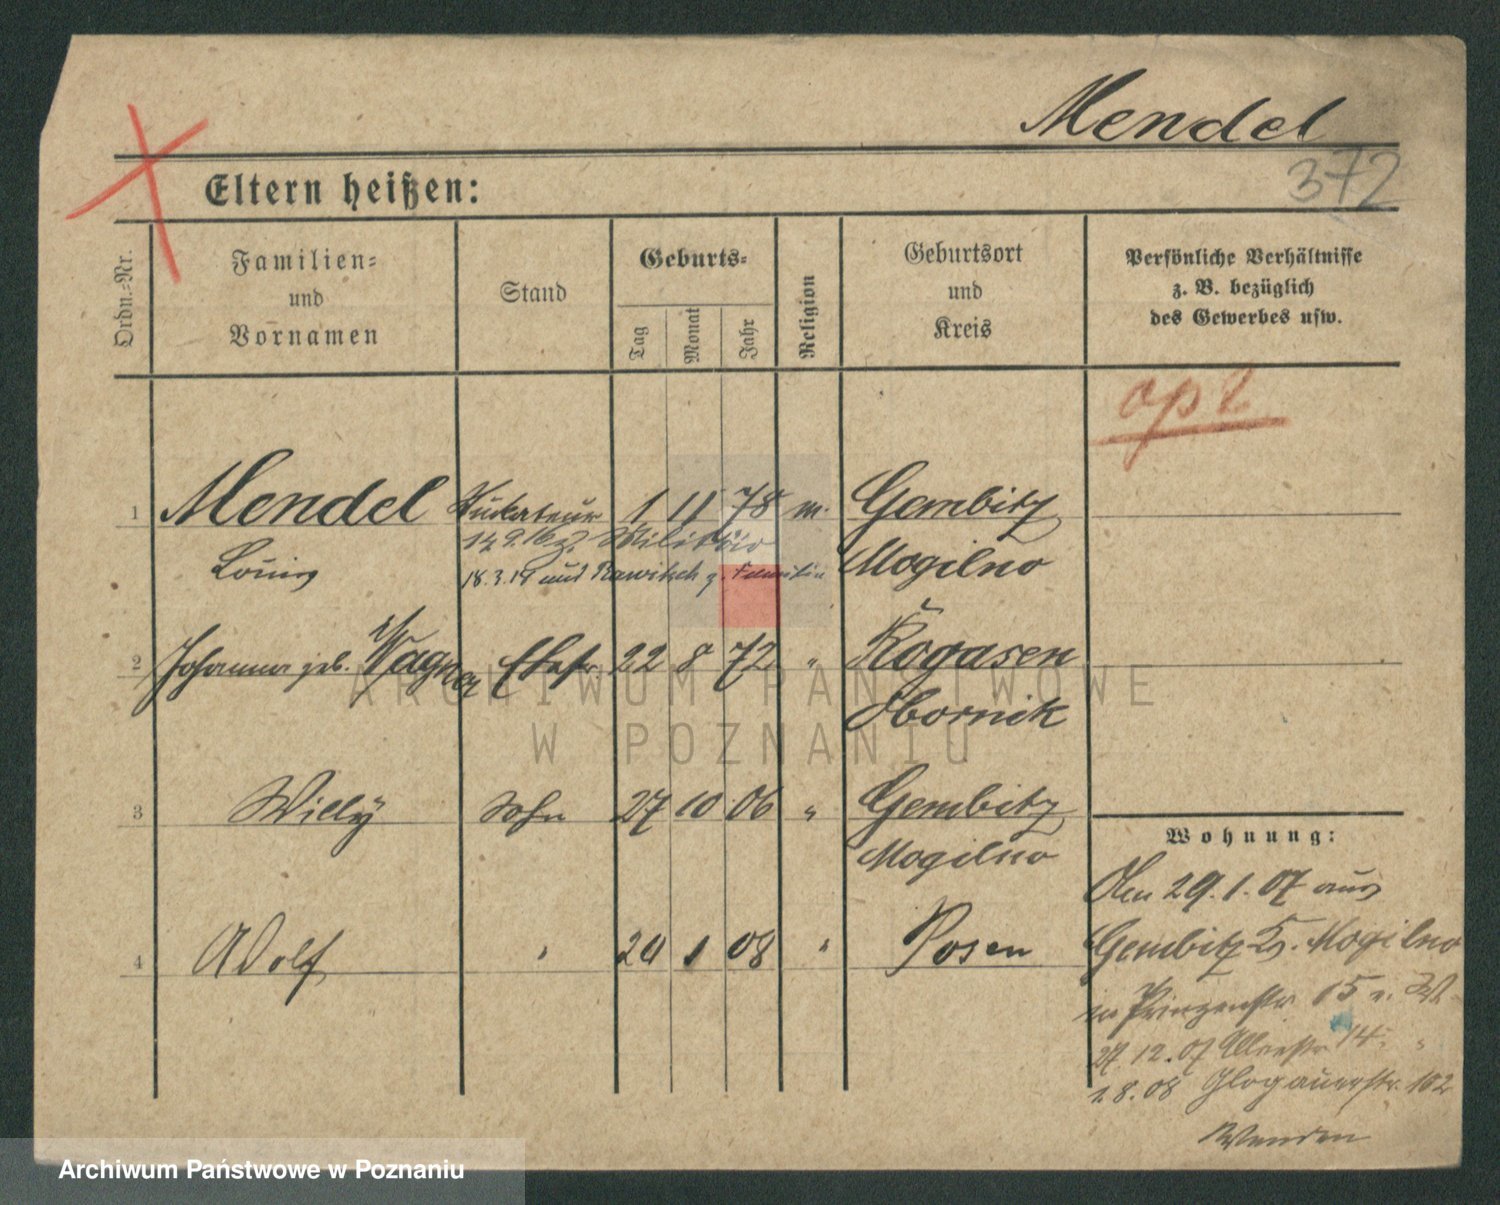 Mendel
372
Eltern heißen:
Ordn.-Nr.
Familien-
und
Vornamen
Stand
Geburts-
Tag
Monat
Jahr
Religion
Geburtsort
und
Kreis
Persönliche Verhältnisse
z. B. bezüglich
des Gewerbes usw.
1 Mendel 1 11 78 m. Gembitz
Militär
Louis 18.3.19 aus Rawitsch z. Familie Mogilno
2 Johanna geb. Wagner Ehefr. 22 8 72 " Rogasen
Obornik
3 Willy Sohn 27 10 06 " Gembitz
Mogilno
4 Adolf " 24 1 08 " Posen
Wohnung:
Den 29.1.07 aus
Gembitz Kr. Mogilno
in Prinzenstr. 15 v. W.
27.12.07 14 "
1.8.08 Glogauerstr. 102
ARCHIWUM PAŃSTWOWE
W POZNANIU
Archiwum Państwowe w Poznaniu